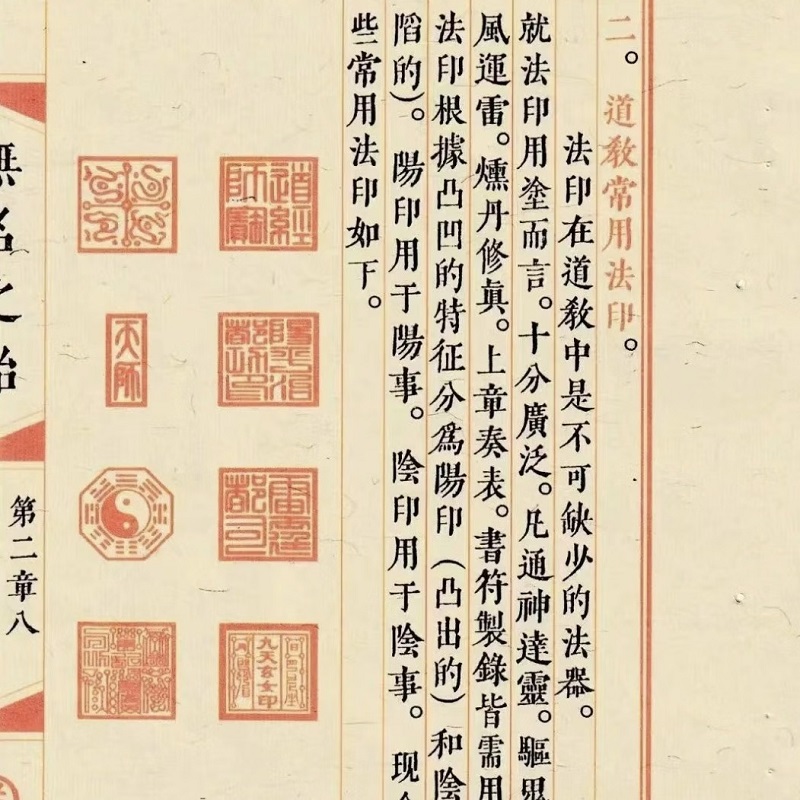 二。道敎常用法印。
法印在道敎中是不可缺少的法器。
就法印用塗而言。十分廣泛。凡通神達靈。驅
風運雷。燻丹修眞。上章奏表。書符製錄皆需用
法印根據凸凹的特征分爲陽印（凸出的）和陰
陷的）。陽印用于陽事。陰印用于陰事。现
些常用法印如下。
道經師寶
陽平治都功印
雷霆都司
九天玄女印
天師
無名之始
第二章八